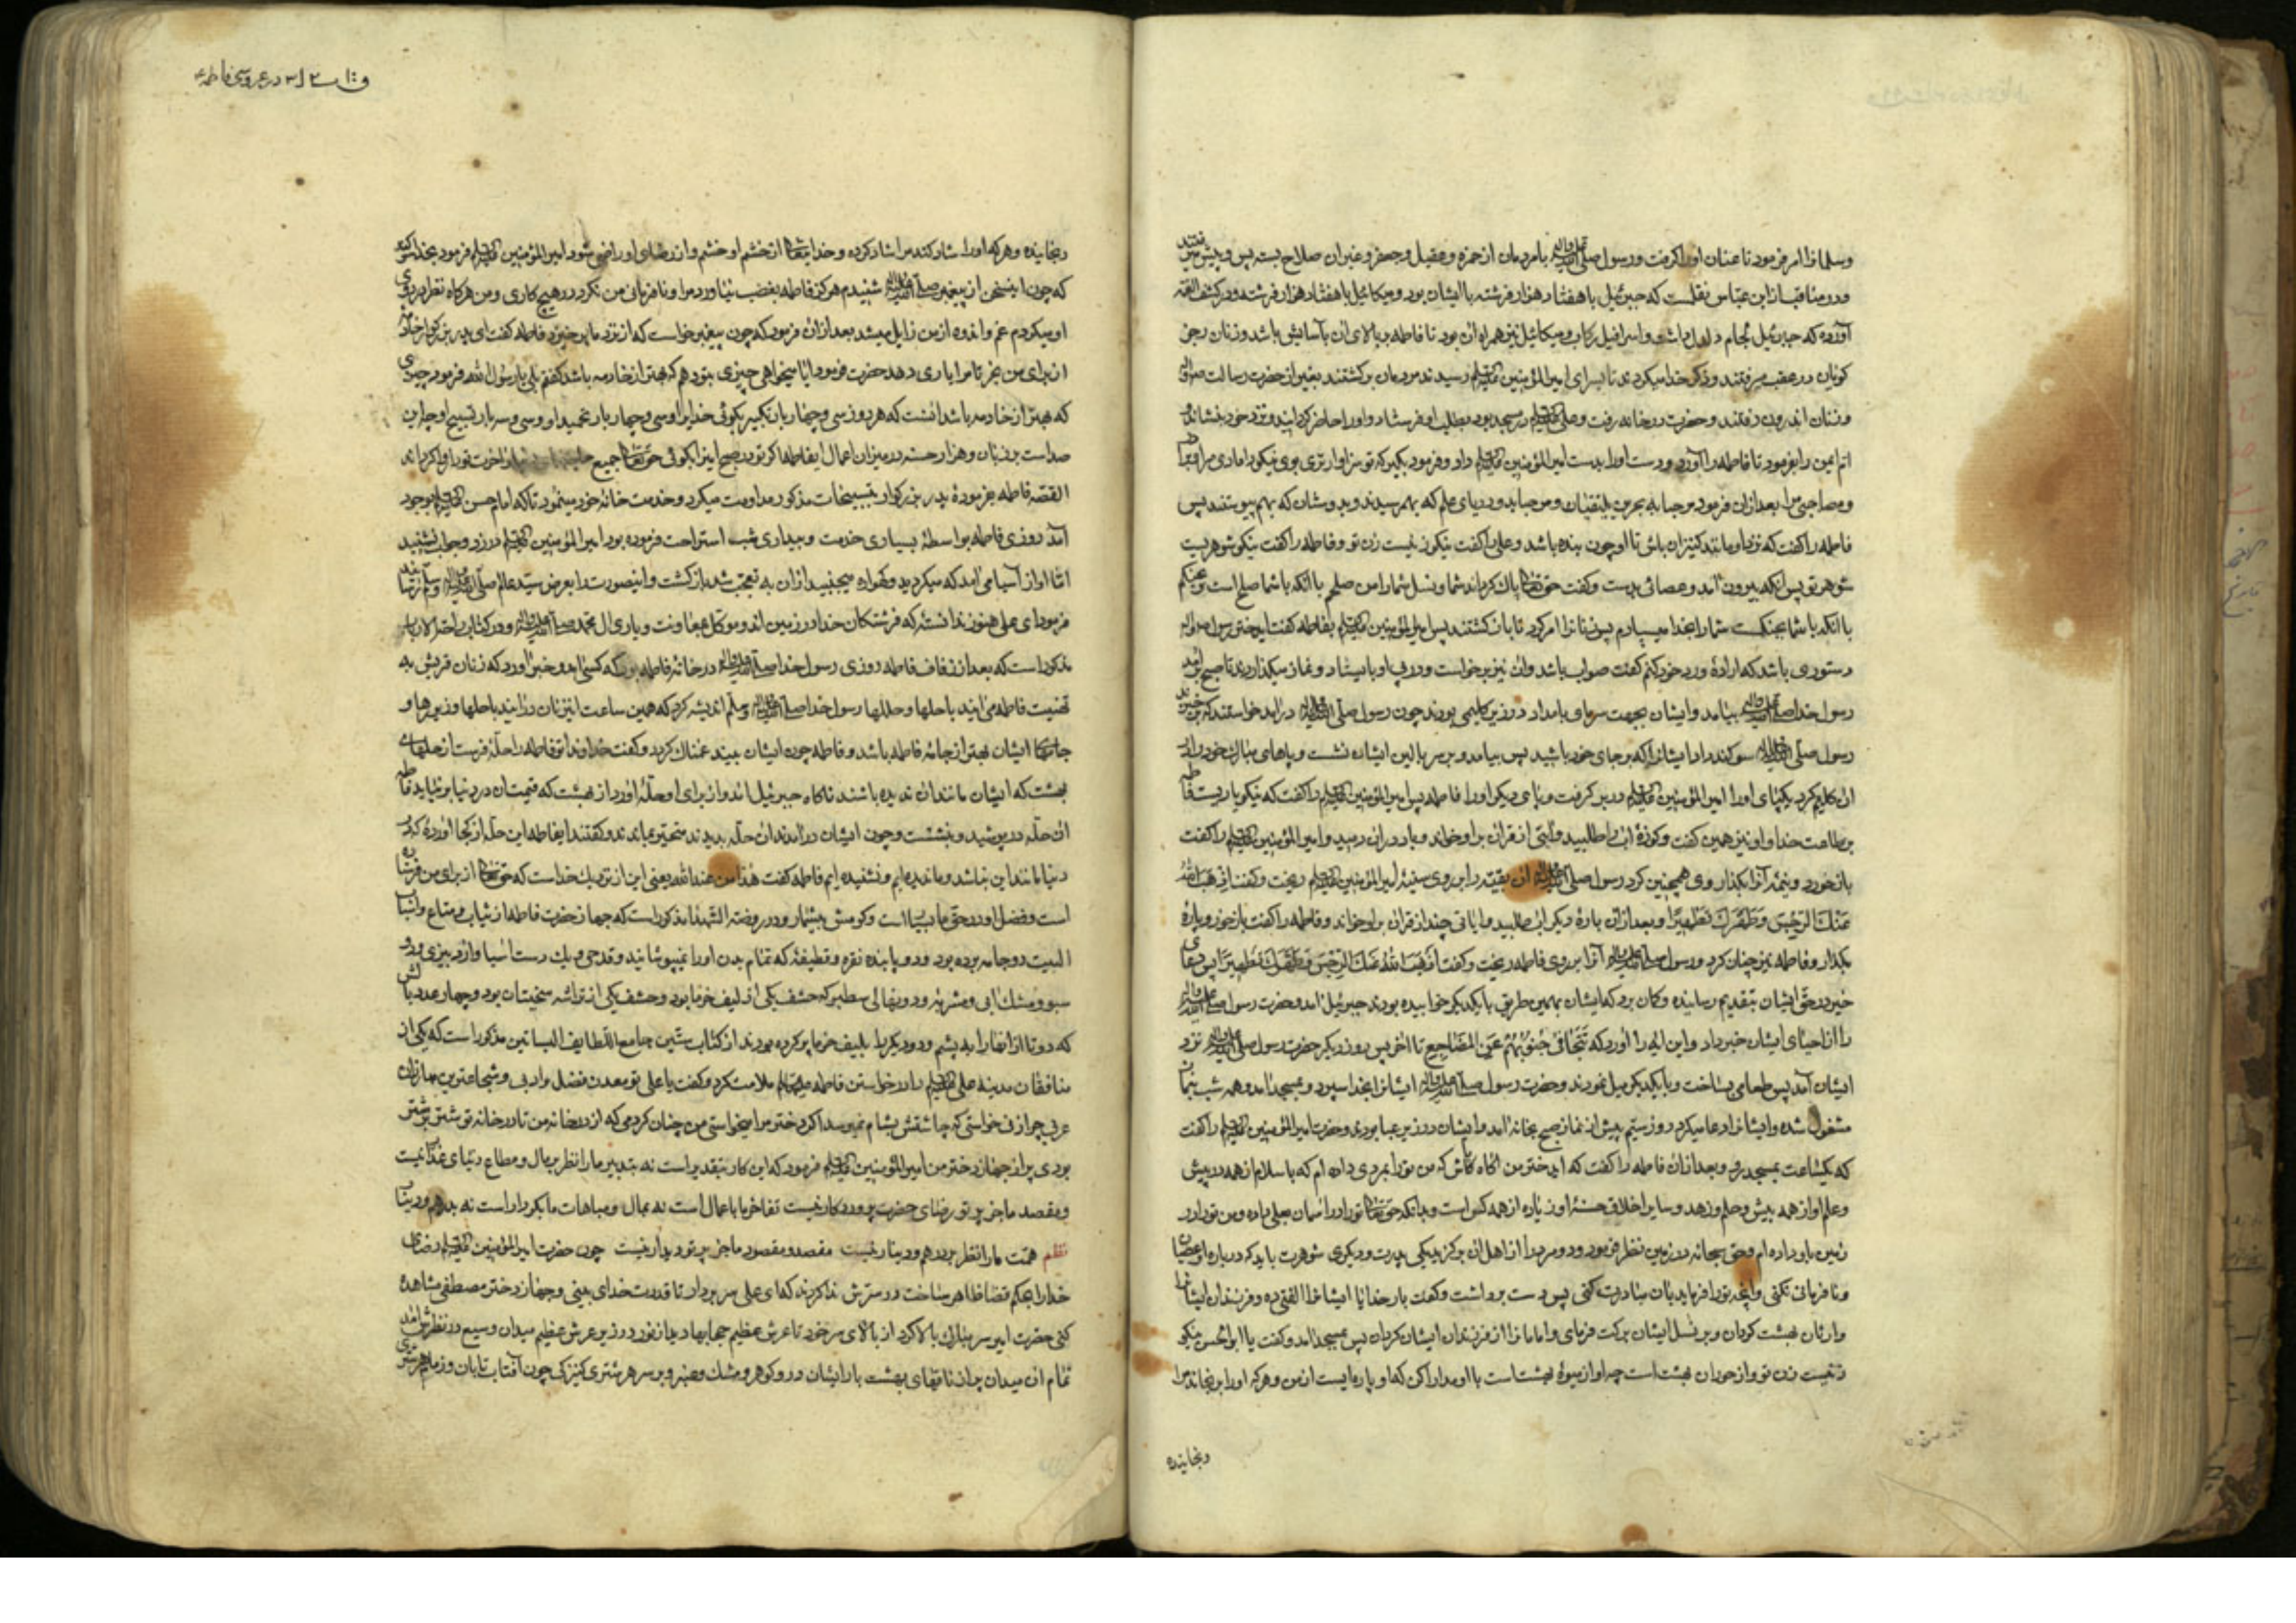 وسلمانرا امر فرمود تا عنان او را گرفت ورسول صلی الله علیه وآله بامردمان از حمزه وعقیل وجعفر وغیران صلاح بسته پس وپیش میرفتند
ودر مناقب از ابن عباس نقلست که جبرئیل باهفتاد هزار فرشته با ایشان بود ومیکائیل باهفتاد هزار فرشته ودر کشف الغمه
آورده که جبرئیل لجام دلدل داشت واسرافیل رکاب ومیکائیل نیز همراه ان بود تا فاطمه بر بالای ان بآسایش باشد وزنان رجز
گویان در عقب میرفتند وذکر خدا میکردند تا بسرای امیرالمؤمنین علیه السلم رسیدند مردمان برگشتند بغیر از حضرت رسالت
وزنان اندرون رفتند وحضرت در خانه رفت وعلی علیه السلم در مسجد بود بطلب او فرستاد واو را حاضر گردانید ونزد خود نشاند
ام ایمن را بفرمود تا فاطمه را آورد ودست او را بدست امیرالمؤمنین علیه السلم داد وفرمود بگیر که تو سزاوارتری بوی نیکو دار
ومصاحبی مرا بعد ازان فرمود مرحبا به بحرین یلتقیان ومرحبا بدو دریای علم که بهم رسیدند وبدوشان که بهم پیوستند پس
فاطمه را گفت که تو او را مانند کنیزان باش تا او چون بنده باشد وعلی را گفت نیکو زنیست زن تو وفاطمه را گفت نیکو شوهریست
شوهر تو پس انگه بیرون آمد وعصائی بدست وگفت حق تعالی پاک گرداند شما ونسل شمارا من صلحم با انکه با شما صلح است وجنگم
با انکه با شما بجنگست شما را بخدا میسپارم پس زنانرا امر کرد تا بازگشتند پس امیرالمؤمنین علیه السلم بفاطمه گفت ای دختر رسول
دستوری باشد که اراده ورد خود کنم گفت صواب باشد وان نیز برخواست ودر پی او بایستاد ونماز میگذاردند تا صبح برآمد
رسول خدا صلی الله علیه وآله بیامد وایشان بجهت سرمای بامداد در زیر گلیمی بودند چون رسول صلی الله علیه وآله درآمد خواستند که برخیزند
رسول صلی الله علیه وآله سوگند داد ایشانرا که بر جای خود باشید پس بیامد وبر سر بالین ایشان نشست وپاهای مبارک خود را در
ان گلیم کرد یکپای او را امیرالمؤمنین علیه السلم در بر گرفت وپای دیگر او را فاطمه پس امیرالمؤمنین علیه السلم را گفت که نیکو یاریست فاطمه
بر طاعت خدا واو نیز همین گفت وکوزه اب را طلبید وآیتی از قران براو خواند وباد دران دمید وامیرالمؤمنین علیه السلم را گفت
باز خورد ونیمه آنرا بگذار وی همچنین کرد رسول صلی الله علیه وآله ان بقیه را بر روی سینه امیرالمؤمنین علیه السلم ریخت وگفت اذهب الله
عَنْكَ الرِّجْسَ وَطَهَّرَكَ تَطْهِيرًا وبعد ازان باره دیگر اب طلبید وایاتی چند از قران براو خواند وفاطمه را گفت باز خور وپاره
بگذار وفاطمه نیز چنان کرد ورسول صلی الله علیه وآله آنرا بر روی فاطمه ریخت وگفت اَذْهَبَ اللهُ عَنْكِ الرِّجْسَ وَطَهَّرَكِ تَطْهِيرًا پس دعای
خیر در حق ایشان بتقدیم رسانیده وگمان برد که ایشان بهمین طریق با یکدیگر خوابیده بودند جبرئیل آمد وحضرت رسول صلی الله علیه وآله
را از احیای ایشان خبر داد واین ایه را آورد که تَتَجَافَى جُنُوبُهُمْ عَنِ الْمَضَاجِعِ تا اخر پس روز دیگر حضرت رسول صلی الله علیه وآله نزد
ایشان آمد پس طعامی بساخت وبا یکدیگر میل نمودند وحضرت رسول صلی الله علیه وآله ایشانرا بخدا سپرد وبمسجد آمد وهمه شب بنماز
مشغول شده وایشانرا دعا میکرد روز سیم پیش از نماز صبح بخانه آمد وایشان در زیر عبا بودند وحضرت امیرالمؤمنین علیه السلم را گفت
که یکساعت بمسجد رو وبعد ازان فاطمه را گفت که ای دختر من اگاه باش که من تو را بمردی داده ام که باسلام از همه در پیش
وعلم او از همه بیش وحلم وزهد وسایر اخلاق حسنه او زیاده از همه کس است وبدانکه حق تعالی تو را در آسمان بعلی داده ومن تو را در
زمین باو داده ام وحق سبحانه در زمین نظر فرمود ودو مرد را از اهل ان برگزید یکی پدرت ودیگری شوهرت باید که درباره او عصیان
ونافرمانی نکنی وانچه تو را فرماید بان مبادرت کنی پس دست برداشت وگفت بار خدایا ایشانرا الفتی ده وفرزندان ایشانرا
وارثان بهشت گردان وبر نسل ایشان برکت فرمای وامامانرا از فرزندان ایشان گردان پس بمسجد آمد وگفت یا ابوالحسن نیکو
زنیست زن تو واز حوران بهشت است چه او از میوه بهشتست با او مدارا کن که او پاره ایست از من وهرکه او را برنجاند مرا
رنجانیده
در عروسی فاطمه ع
رنجانیده وهرکه او را شاد کند مرا شاد کرده وخدا یتعالی از خشم او خشم واز رضای او راضی شود امیرالمؤمنین علیه السلم فرمود بخدا سوگند
که چون این سخن از پیغمبر صلی الله علیه وآله شنیدم هرگز فاطمه بغضب نیاورد مرا ونافرمانی من نکرد در هیچ کاری ومن هرگاه نظر بر روی
او میکردم غم واندوه از من زایل میشد بعد ازان فرمود که چون پیغمبر خواست که از نزد ما برخیزد فاطمه گفت ای پدر بزرگوار خادمی
از برای من بخر تا مرا یاری دهد حضرت فرمود ایا میخواهی چیزی بتو دهم که بهتر از خادمه باشد گفتم بلی یا رسول الله فرمود چیزی
که بهتر از خادمه باشد آنست که هر روز سی وچهار بار تکبیر بگوئی خدایرا وسی وچهار بار تحمید او وسی وسه بار تسبیح او چه این
صد است بر زبان وهزار حسنه در میزان اعمال ایفاطمه اگر تو در صبح اینرا بگوئی حق تعالی جمیع
القصه فاطمه بفرموده پدر بزرگوار بتسبیحات مذکور مداومت میکرد وخدمت خانه خود مینمود تا که امام حسن علیه السلم بوجود
آمد روزی فاطمه بواسطه بسیاری خدمت وبیداری شب استراحت فرموده بود امیرالمؤمنین علیه السلم در زد وجواب نشنید
امّا آواز آسیا می آمد که میگردید وگهواره میجنبید ازان به تعجب شد بازگشت واینصورت را بعرض سید عالم صلی الله علیه وآله وسلم رسانید
فرمود ای علی هنوز ندانسته که فرشتگان خدا در زمین اند وموکل بمعاونت ویاری ال محمد صلی الله علیه وآله ودر کتاب
مذکور است که بعد از زفاف فاطمه روزی رسول خدا صلی الله علیه وآله در خانه فاطمه بود که کسی آمد وخبر آورد که زنان قریش به
تهنیت فاطمه می آیند باحلها وحللها رسول خدا صلی الله علیه وآله وسلم اندیشه کرد که همین ساعت این زنان درآیند باحلها وزیورها و
جامهای ایشان بهتر از جامه فاطمه باشد وفاطمه چون ایشان بیند غمناک گردد وگفت خداوندا تو فاطمه را حله فرست از حلهای
بهشت که ایشان مانند ان ندیده باشند ناگاه جبرئیل آمد واز برای او حله آورد از بهشت که قیمت ان در دنیا بر نیاید فاطمه
ان حله در پوشید وبنشست وچون ایشان درآمدند ان حله بدیدند متحیر بماندند وگفتند ایفاطمه این حله از کجا آورده که در
دنیا مانند این نباشد وما ندیده ایم ونشنیده ایم فاطمه گفت هذا من عند الله یعنی این از نزدیک خداست که حق تعالی از برای من فرستاده
است وفضل او در حق ما بسیار است وکرمش بیشمار ودر روضة الشهدا مذکور است که جهاز حضرت فاطمه از ثیاب ومتاع واثاث
البیت دو جامه برده بود ودو بازبند نقره وقطیفه که تمام بدن او را نمیپوشانید وقدحی ویک دست آسیا
سبو ومشک ابی ومشربه ودو نهالی سطبر که حشف یکی از لیف خرما بود وحشف یکی از تراشه سختیان بود وچهار عدد بالش
که دو تا از انها را به پشم ودو دیگر را بلیف خرما پر کرده بودند از کتاب ستین جامع اللطایف البساتین مذکور است که یکی از
منافقان مدینه علی علیه السلم را در خواستن فاطمه علیها السلام ملامت کرد وگفت یا علی تو معدن فضل وادبی وشجاعترین مبارزان
عربی چرا زنی خواستی که چاشتش بشام نمیرسد اگر دختر مرا میخواستی من چنان کردمی که از در خانه من تا در خانه تو شتر بر شتر
بودی پر از جهاز دختر من امیرالمؤمنین علیه السلم فرمود که این کار بتقدیر است نه بتدبیر ما را نظر بر مال ومطاع دنیای غدار نیست
ومقصد ما جز پرتو رضای حضرت پروردگار نیست تفاخر ما باعمال است نه بمال ومباهات ما بکردار است نه بدرهم ودینار
نظم همت ما را نظر بر درهم ودینار نیست مقصد ومقصود ما جز پرتو دیدار نیست چون حضرت امیرالمؤمنین علیه السلم رضای
خدا را بحکم قضا ظاهر ساخت در سرش ندا کردند که ای علی سر بردار تا قدرت خدای بینی وجهاز دختر مصطفی مشاهده
کنی حضرت امیر سر مبارک بالا کرد از بالای سر خود تا عرش عظیم حجابها دید از نور ودر زیر عرش عظیم میدان وسیع در نظرش آمد
تمام ان میدان پر از ناقهای بهشت بار ایشان در وگوهر ومشک وعنبر وبر سر هر شتری کنیزکی چون آفتاب تابان وزمام هر شتری